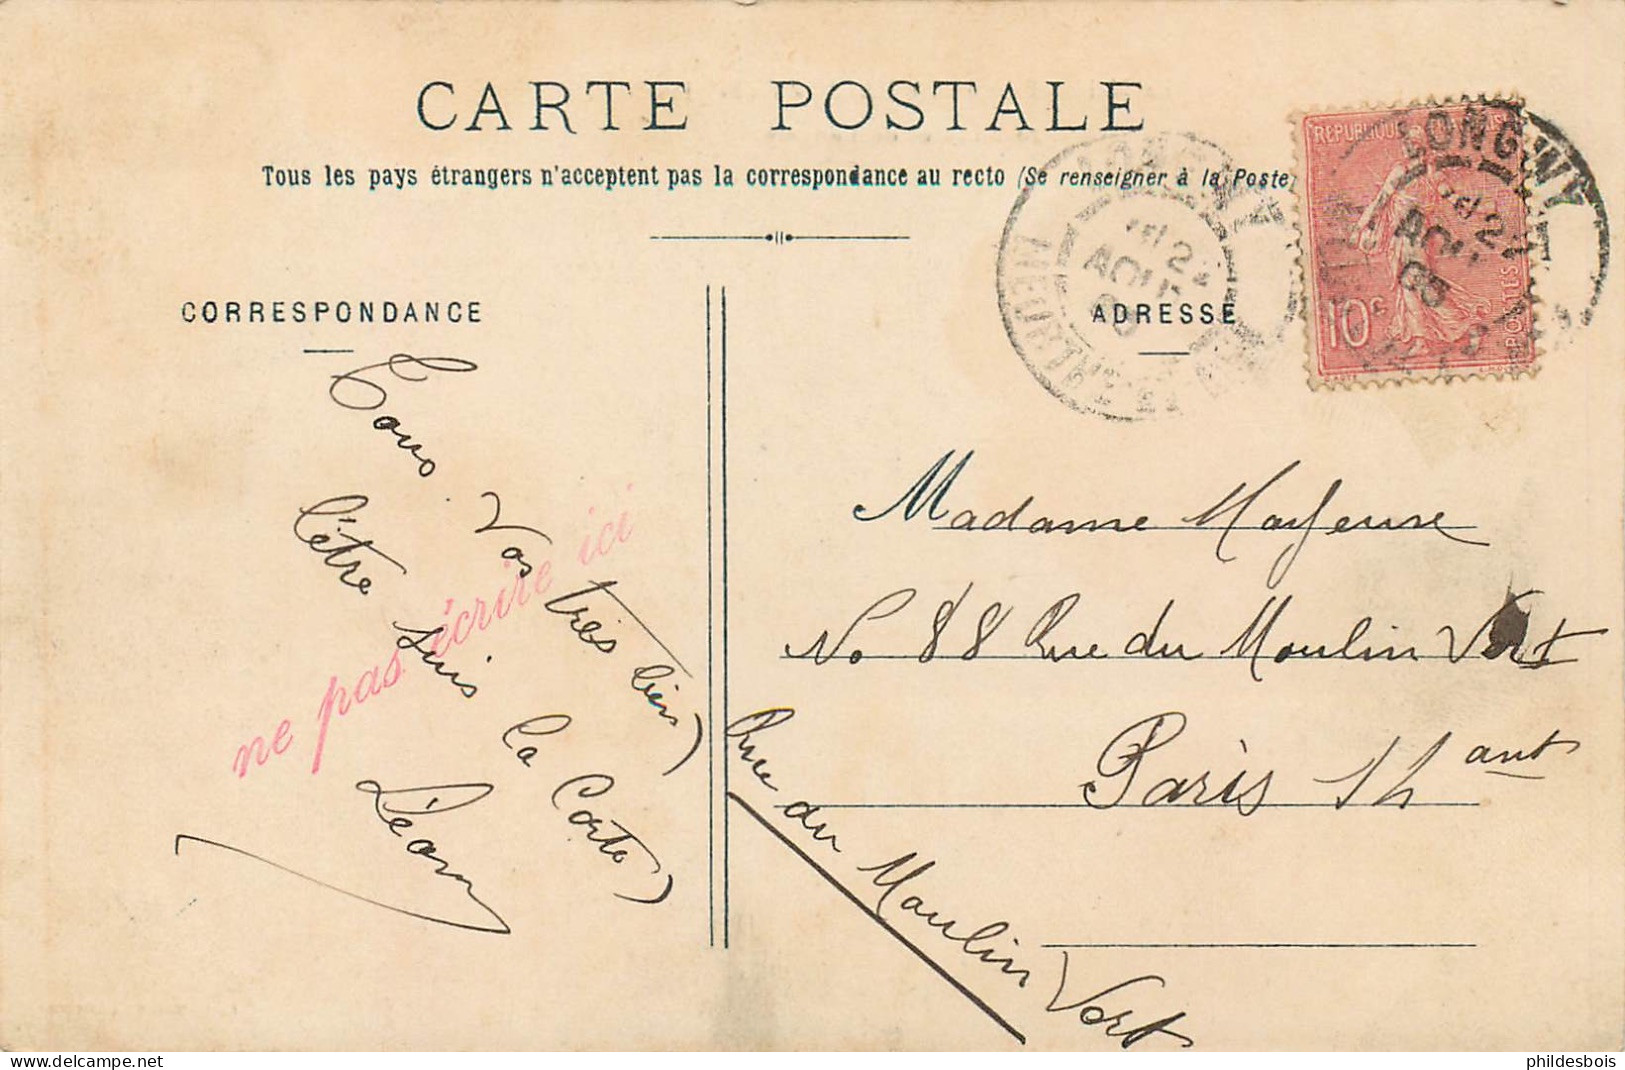 CARTE POSTALE
Tous les pays étrangers n'acceptent pas la correspondance au recto (Se renseigner à la Poste
CORRESPONDANCE
ADRESSE
REPUBLIQUE
10c
POSTES
LONGWY
22
AOUT
05
LONGWY
22
AOUT
05
MEURTHE ET
Tous
Vos très bien)
l'être suis la Carte)
Léon
ne pas écrire ici
Madame Mayeuse
No 88 Rue du Moulin Vert
Paris 14 ant
Rue du Moulin Vert
phildesbois